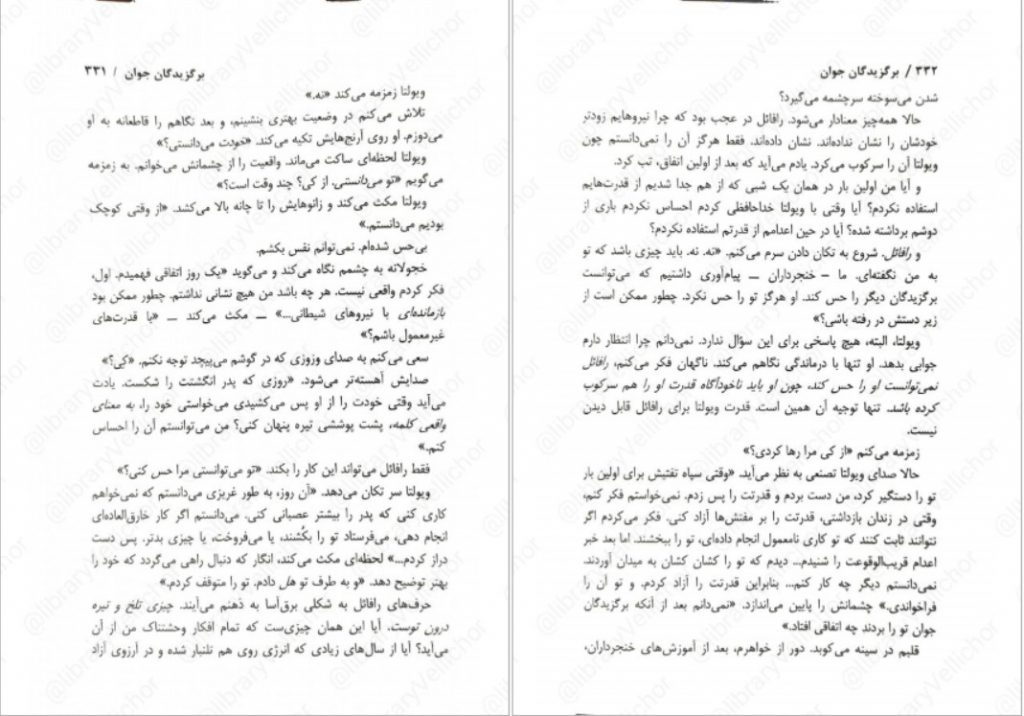 برگزیدگان جوان / ۳۳۱
ویولتا زمزمه می‌کند «نه.»
تلاش می‌کنم در وضعیت بهتری بنشینم، و بعد نگاهم را قاطعانه به او
می‌دوزم. او روی آرنج‌هایش تکیه می‌کند. «خودت می‌دانستی؟»
ویولتا لحظه‌ای ساکت می‌ماند. واقعیت را از چشمانش می‌خوانم. به زمزمه
می‌گویم «تو می‌دانستی. از کی؟ چند وقت است؟»
ویولتا مکث می‌کند و زانوهایش را تا چانه بالا می‌کشد. «از وقتی کوچک
بودیم می‌دانستم.»
بی‌حس شده‌ام. نمی‌توانم نفس بکشم.
خجولانه به چشمم نگاه می‌کند و می‌گوید «یک روز اتفاقی فهمیدم. اول،
فکر کردم واقعی نیست. هر چه باشد من هیچ نشانی نداشتم. چطور ممکن بود
بازمانده‌ای با نیروهای شیطانی...» ــ مکث می‌کند ــ «با قدرت‌های
غیرمعمول باشم؟»
سعی می‌کنم به صدای وزوزی که در گوشم می‌پیچد توجه نکنم. «کِی؟»
صدایش آهسته‌تر می‌شود. «روزی که پدر انگشتت را شکست. یادت
می‌آید وقتی خودت را از او پس می‌کشیدی می‌خواستی خود را، به معنای
واقعی کلمه، پشت پوششی تیره پنهان کنی؟ من می‌توانستم آن را احساس
کنم.»
فقط رافائل می‌تواند این کار را بکند. «تو می‌توانستی مرا حس کنی؟»
ویولتا سر تکان می‌دهد. «آن روز، به طور غریزی می‌دانستم که نمی‌خواهم
کاری کنی که پدر را بیشتر عصبانی کنی. می‌دانستم اگر کار خارق‌العاده‌ای
انجام دهی، می‌فرستاد تو را بکُشند، یا می‌فروخت، یا چیزی بدتر. پس دست
دراز کردم...» لحظه‌ای مکث می‌کند، انگار که دنبال راهی می‌گردد که خود را
بهتر توضیح دهد. «و به طرف تو هل دادم. تو را متوقف کردم.»
حرف‌های رافائل به شکلی برق‌آسا به ذهنم می‌آیند. چیزی تلخ و تیره
درون توست. آیا این همان چیزی‌ست که تمام افکار وحشتناک من از آن
می‌آید؟ آیا از سال‌های زیادی که انرژی روی هم تلنبار شده و در آرزوی آزاد
۳۳۲ / برگزیدگان جوان
شدن می‌سوخته سرچشمه می‌گیرد؟
حالا همه‌چیز معنادار می‌شود. رافائل در عجب بود که چرا نیروهایم زودتر
خودشان را نشان نداده‌اند. نشان داده‌اند. فقط هرگز آن را نمی‌دانستم چون
ویولتا آن را سرکوب می‌کرد. یادم می‌آید که بعد از اولین اتفاق، تب کرد.
و آیا من اولین بار در همان یک شبی که از هم جدا شدیم از قدرت‌هایم
استفاده نکردم؟ آیا وقتی با ویولتا خداحافظی کردم احساس نکردم باری از
دوشم برداشته شده؟ آیا در حین اعدامم از قدرتم استفاده نکردم؟
و رافائل. شروع به تکان دادن سرم می‌کنم. «نه. نه. باید چیزی باشد که تو
به من نگفته‌ای. ما - خنجرداران ــ پیام‌آوری داشتیم که می‌توانست
برگزیدگان دیگر را حس کند. او هرگز تو را حس نکرد. چطور ممکن است از
زیر دستش در رفته باشی؟»
ویولتا، البته، هیچ پاسخی برای این سؤال ندارد. نمی‌دانم چرا انتظار دارم
جوابی بدهد. او تنها با درماندگی نگاهم می‌کند. ناگهان فکر می‌کنم، رافائل
نمی‌توانست او را حس کند، چون او باید ناخودآگاه قدرت او را هم سرکوب
کرده باشد. تنها توجیه آن همین است. قدرت ویولتا برای رافائل قابل دیدن
نیست.
زمزمه می‌کنم «از کی مرا رها کردی؟»
حالا صدای ویولتا تصنعی به نظر می‌آید. «وقتی سپاه تفتیش برای اولین بار
تو را دستگیر کرد، من دست بردم و قدرتت را پس زدم. نمی‌خواستم فکر کنم،
وقتی در زندان بازداشتی، قدرتت را بر مفتش‌ها آزاد کنی. فکر می‌کردم اگر
نتوانند ثابت کنند که تو کاری نامعمول انجام داده‌ای، تو را ببخشند. اما بعد خبر
اعدام قریب‌الوقوعت را شنیدم... دیدم که تو را کشان کشان به میدان آوردند.
نمی‌دانستم دیگر چه کار کنم... بنابراین قدرتت را آزاد کردم، و تو آن را
فراخواندی.» چشمانش را پایین می‌اندازد. «نمی‌دانم بعد از آنکه برگزیدگان
جوان تو را بردند چه اتفاقی افتاد.»
قلبم در سینه می‌کوبد. دور از خواهرم، بعد از آموزش‌های خنجرداران،
@libraryVellichor